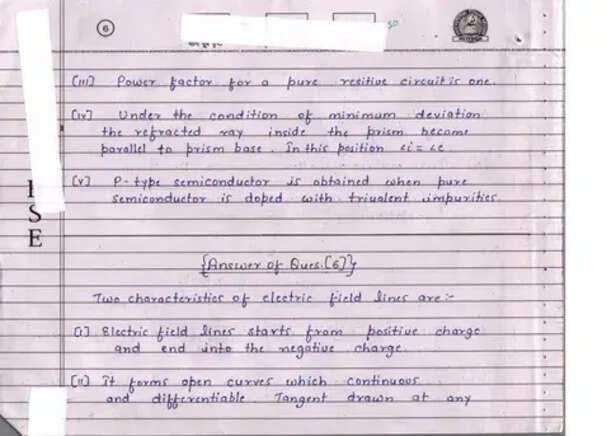 6
(iii) Power factor for a pure resitive circuit is one.
(iv) Under the condition of minimum deviation
the refracted ray inside the prism become
parallel to prism base. In this position ∠i = ∠e
(v) P-type semiconductor is obtained when pure
semiconductor is doped with trivalent impurities.
S
E
{Answer of Ques.(6)}
Two characteristics of electric field lines are :-
(i) Electric field lines starts from positive charge
and end into the negative charge.
(ii) It forms open curves which continuous
and differentiable. Tangent drawn at any